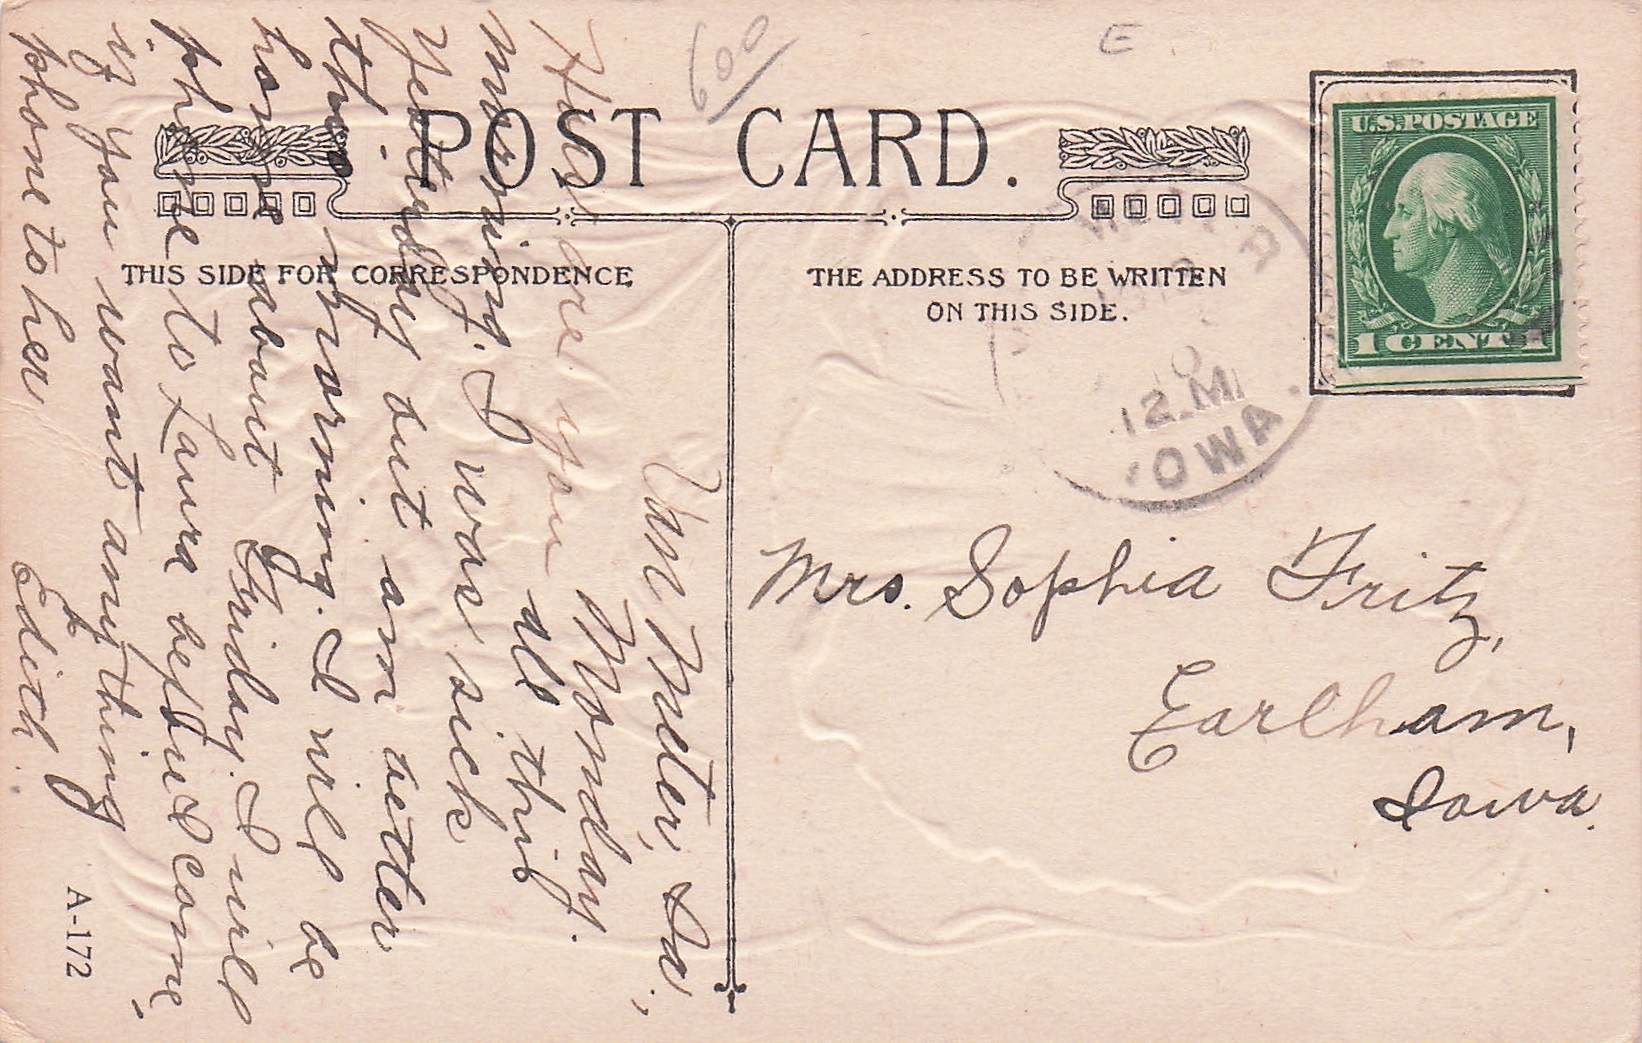 600
E
POST CARD.
THIS SIDE FOR CORRESPONDENCE
THE ADDRESS TO BE WRITTEN
ON THIS SIDE.
U.S. POSTAGE
1 CENT 1
12 M
IOWA.
Van Meter, Ia.,
Monday.
How are you all this
morning. I was sick
Yesterday but am better
this morning. I will be
home about Friday. I will
phone to Laura before I come,
if you want anything
phone to her
Edith.
Mrs. Sophia Fritz,
Earlham,
Iowa.
A-172